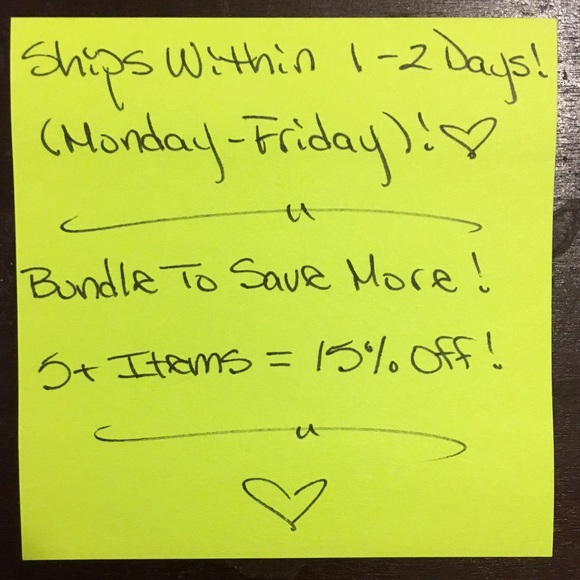 Ships Within 1-2 Days!
(Monday-Friday)! ♡
Bundle To Save More!
5+ Items = 15% Off!
♡